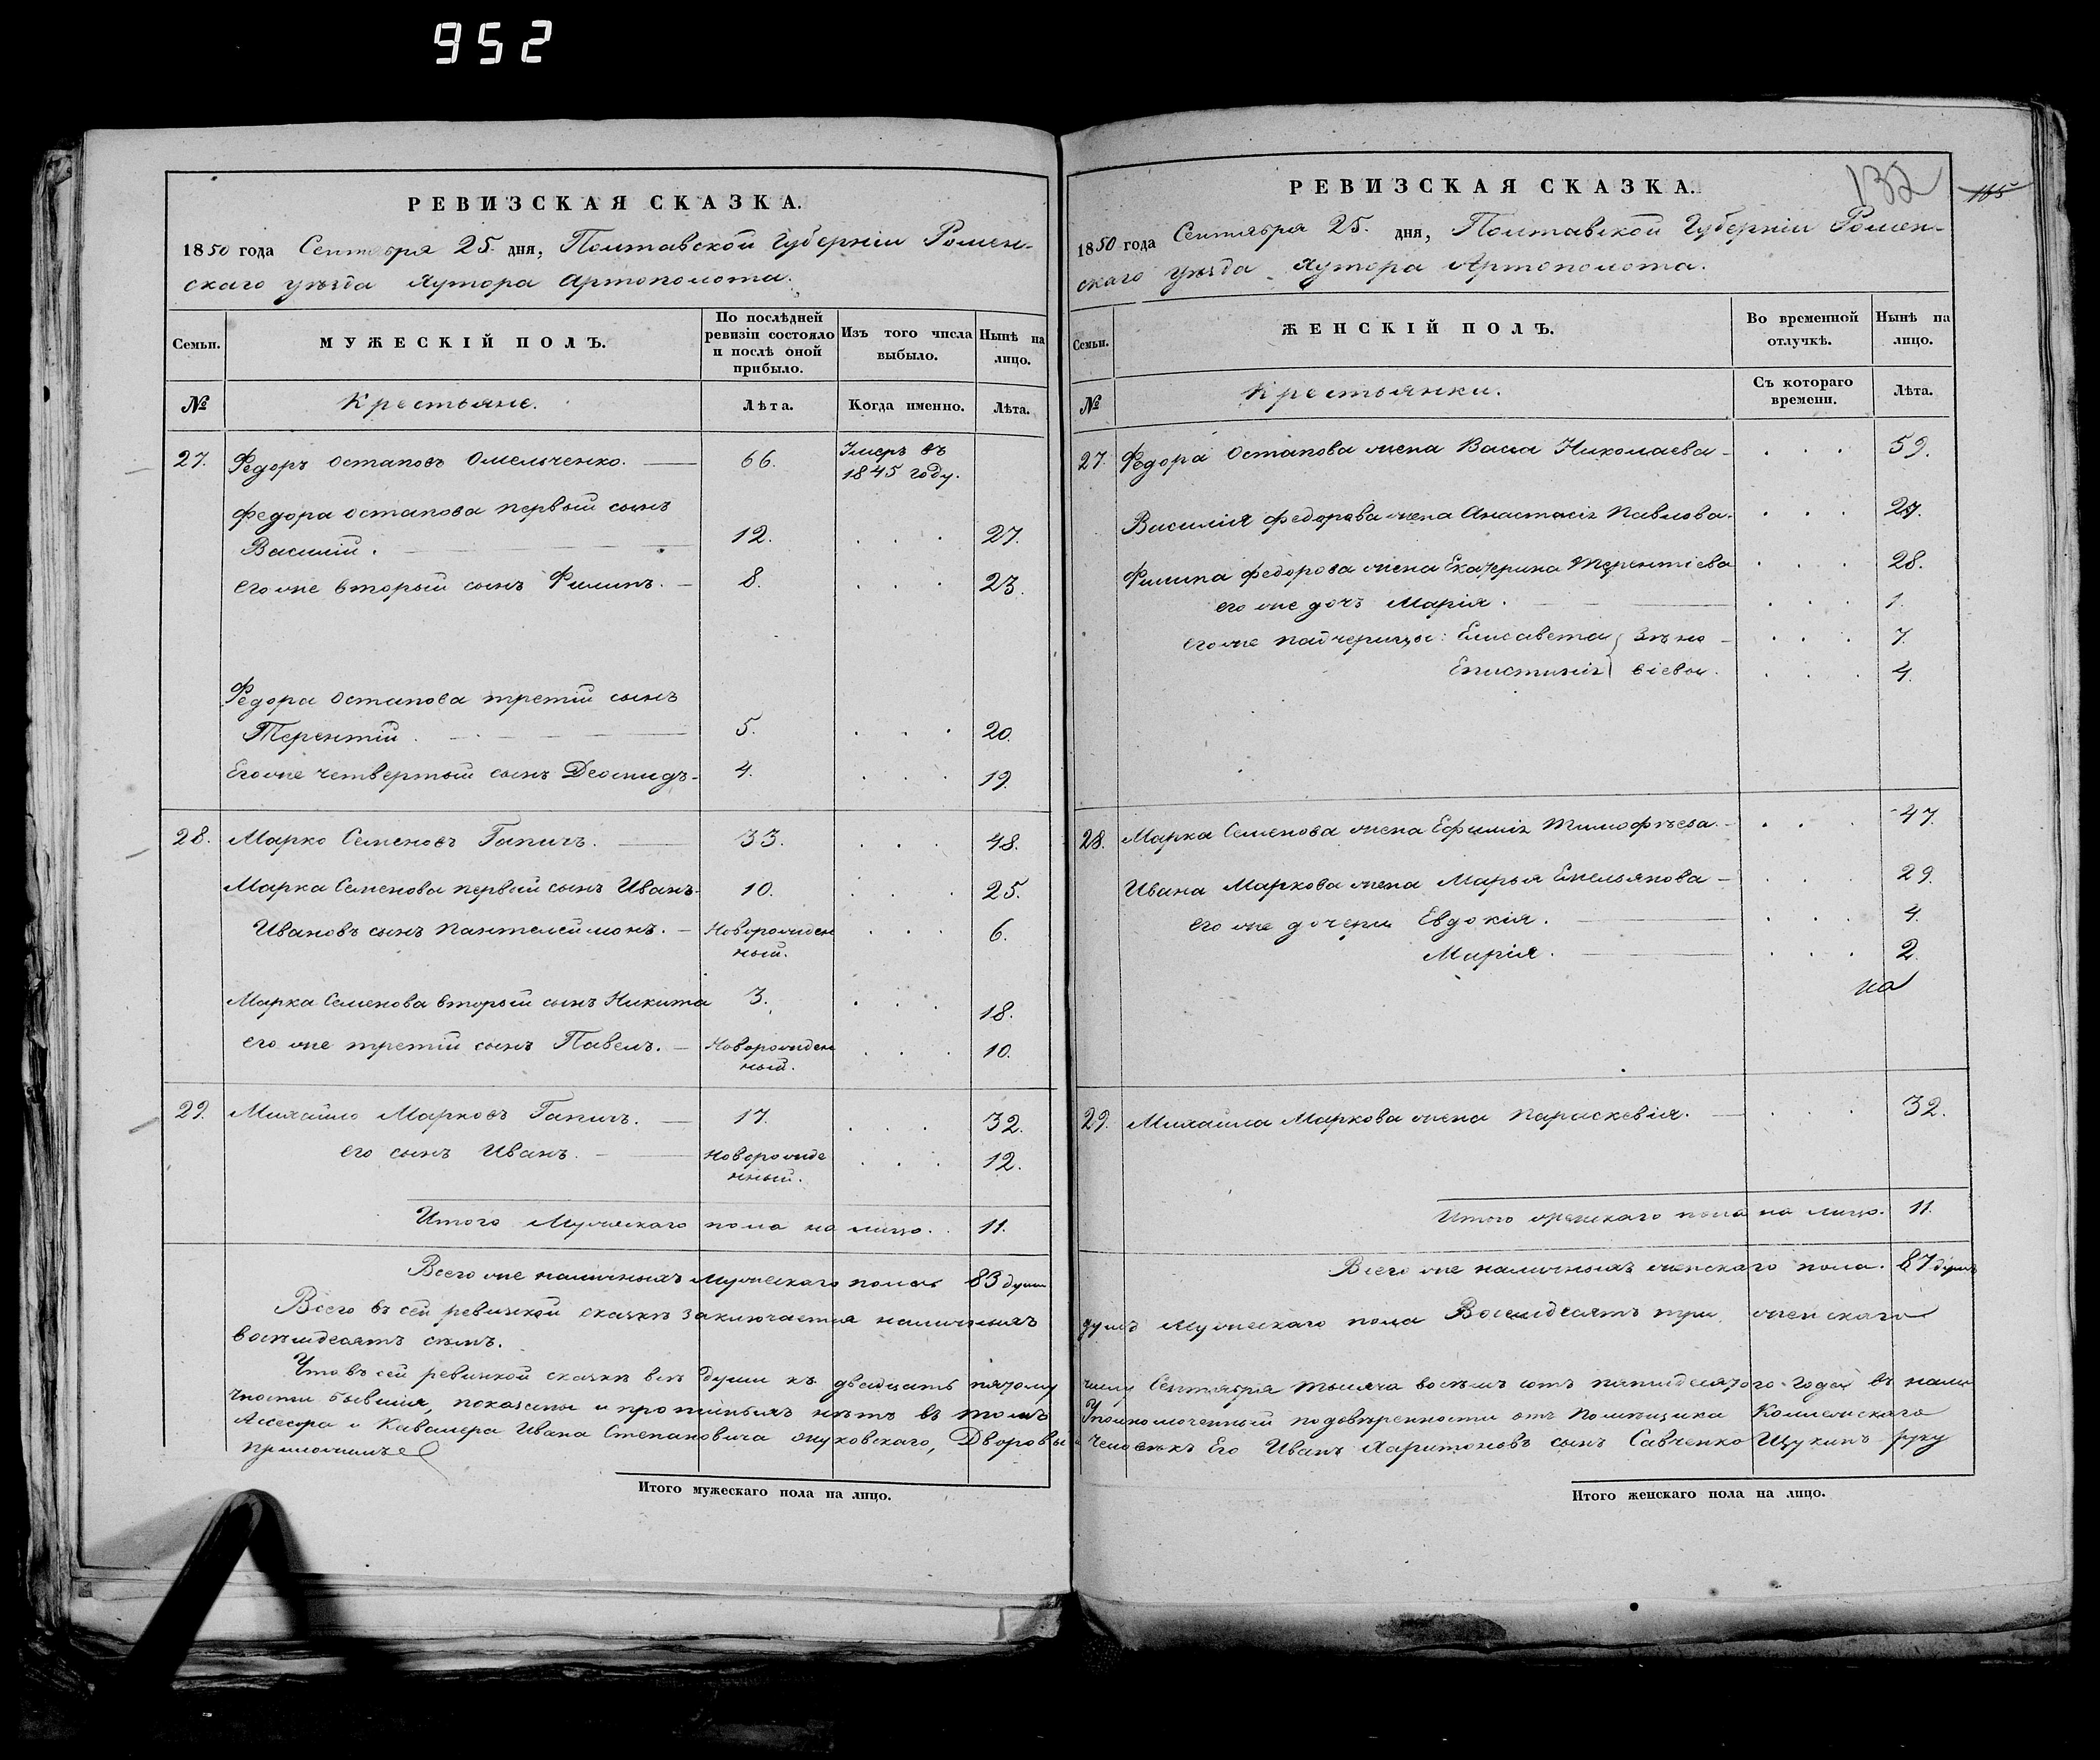 952
РЕВИЗСКАЯ СКАЗКА.
1850 года Сентября 25. дня, Полтавской Губерніи Ромен-
скаго уезда Хутора Артополота.
Семьи.
МУЖЕСКІЙ ПОЛЪ.
По послѣдней ревизіи состояло и послѣ оной прибыло.
Изъ того числа выбыло.
Нынѣ на лицо.
№ Крестьяне. Лѣта. Когда именно. Лѣта.
27. Федоръ Остаповъ Омельченко. 66. Умеръ въ
1845 году.
Федора Остапова первый сынъ
Василій. 12. . . . 27.
его же второй сынъ Филипъ. 8. . . . 23.
Федора Остапова третій сынъ
Терентій. 5. . . . 20.
Его же четвертый сынъ Деомидъ 4. . . . 19.
28. Марко Семеновъ Гапичъ. 33. . . . 48.
Марка Семенова первый сынъ Иванъ 10. . . . 25.
Ивановъ сынъ Пантелеймонъ. Новорожден . . . 6.
ный.
Марка Семенова вторый сынъ Никита 3. . . . 18.
его же третій сынъ Павелъ. Новорожден . . . 10.
ный.
29. Михайло Марковъ Гапичъ. 17. . . . 32.
его сынъ Иванъ. Новорожде . . . 12.
нный.
Итого Мужескаго пола на лицо. 11.
Всего же наличныхъ мужескаго пола 83 души
Всего въ сей ревизкой сказкѣ заключается наличныхъ
восемдесятъ семъ.
Что въ сей ревизкой сказкѣ всѣ души къ двадцать пятому
чности бывшия, показаны и прописныхъ нетъ въ томъ
Ассесора и Кавалера Ивана Степановича Жуковскаго, Дворовы
приложилъ
Итого мужескаго пола на лицо.
132
165
РЕВИЗСКАЯ СКАЗКА.
1850 года Сентября 25. дня, Полтавской Губерніи Ромен-
скаго уезда Хутора Артополота.
Семьи.
ЖЕНСКІЙ ПОЛЪ.
Во временной отлучкѣ.
Нынѣ на лицо.
№ Крестьянки. Съ котораго времени. Лѣта.
27. Федора Остапова жена Васа Николаева . . . 59.
Василія Федорова жена Анастасія Павлова . . . 27.
Филипа Федорова жена Екатерина Терентіева . . . 28.
его же дочъ Марія. . . . 1.
его же падчерицы: Елисавета Зѣно . . . 7.
Епистинія віевы. . . . 4.
28. Марка Семенова жена Ефимія Тимофѣева . . . 47.
Ивана Маркова жена Марья Емельянова . . . 29.
его же дочери Евдокія. . . . 4.
Марія. . . . 2.
на
29. Михайла Маркова жена Параскевія. . . . 32.
Итого женскаго пола на лицо. 11.
Всего же наличныхъ женскаго пола. 87 душъ
душъ Мужескаго пола Восемдесятъ три женскаго
числу Сентября тысяча восемъ сотъ пятидесятого года въ нали
Уполномоченный по доверенности отъ Помещика Коллежскаго
человекъ Его Иванъ Харитоновъ сынъ Савченко Щукинъ руку
Итого женскаго пола на лицо.